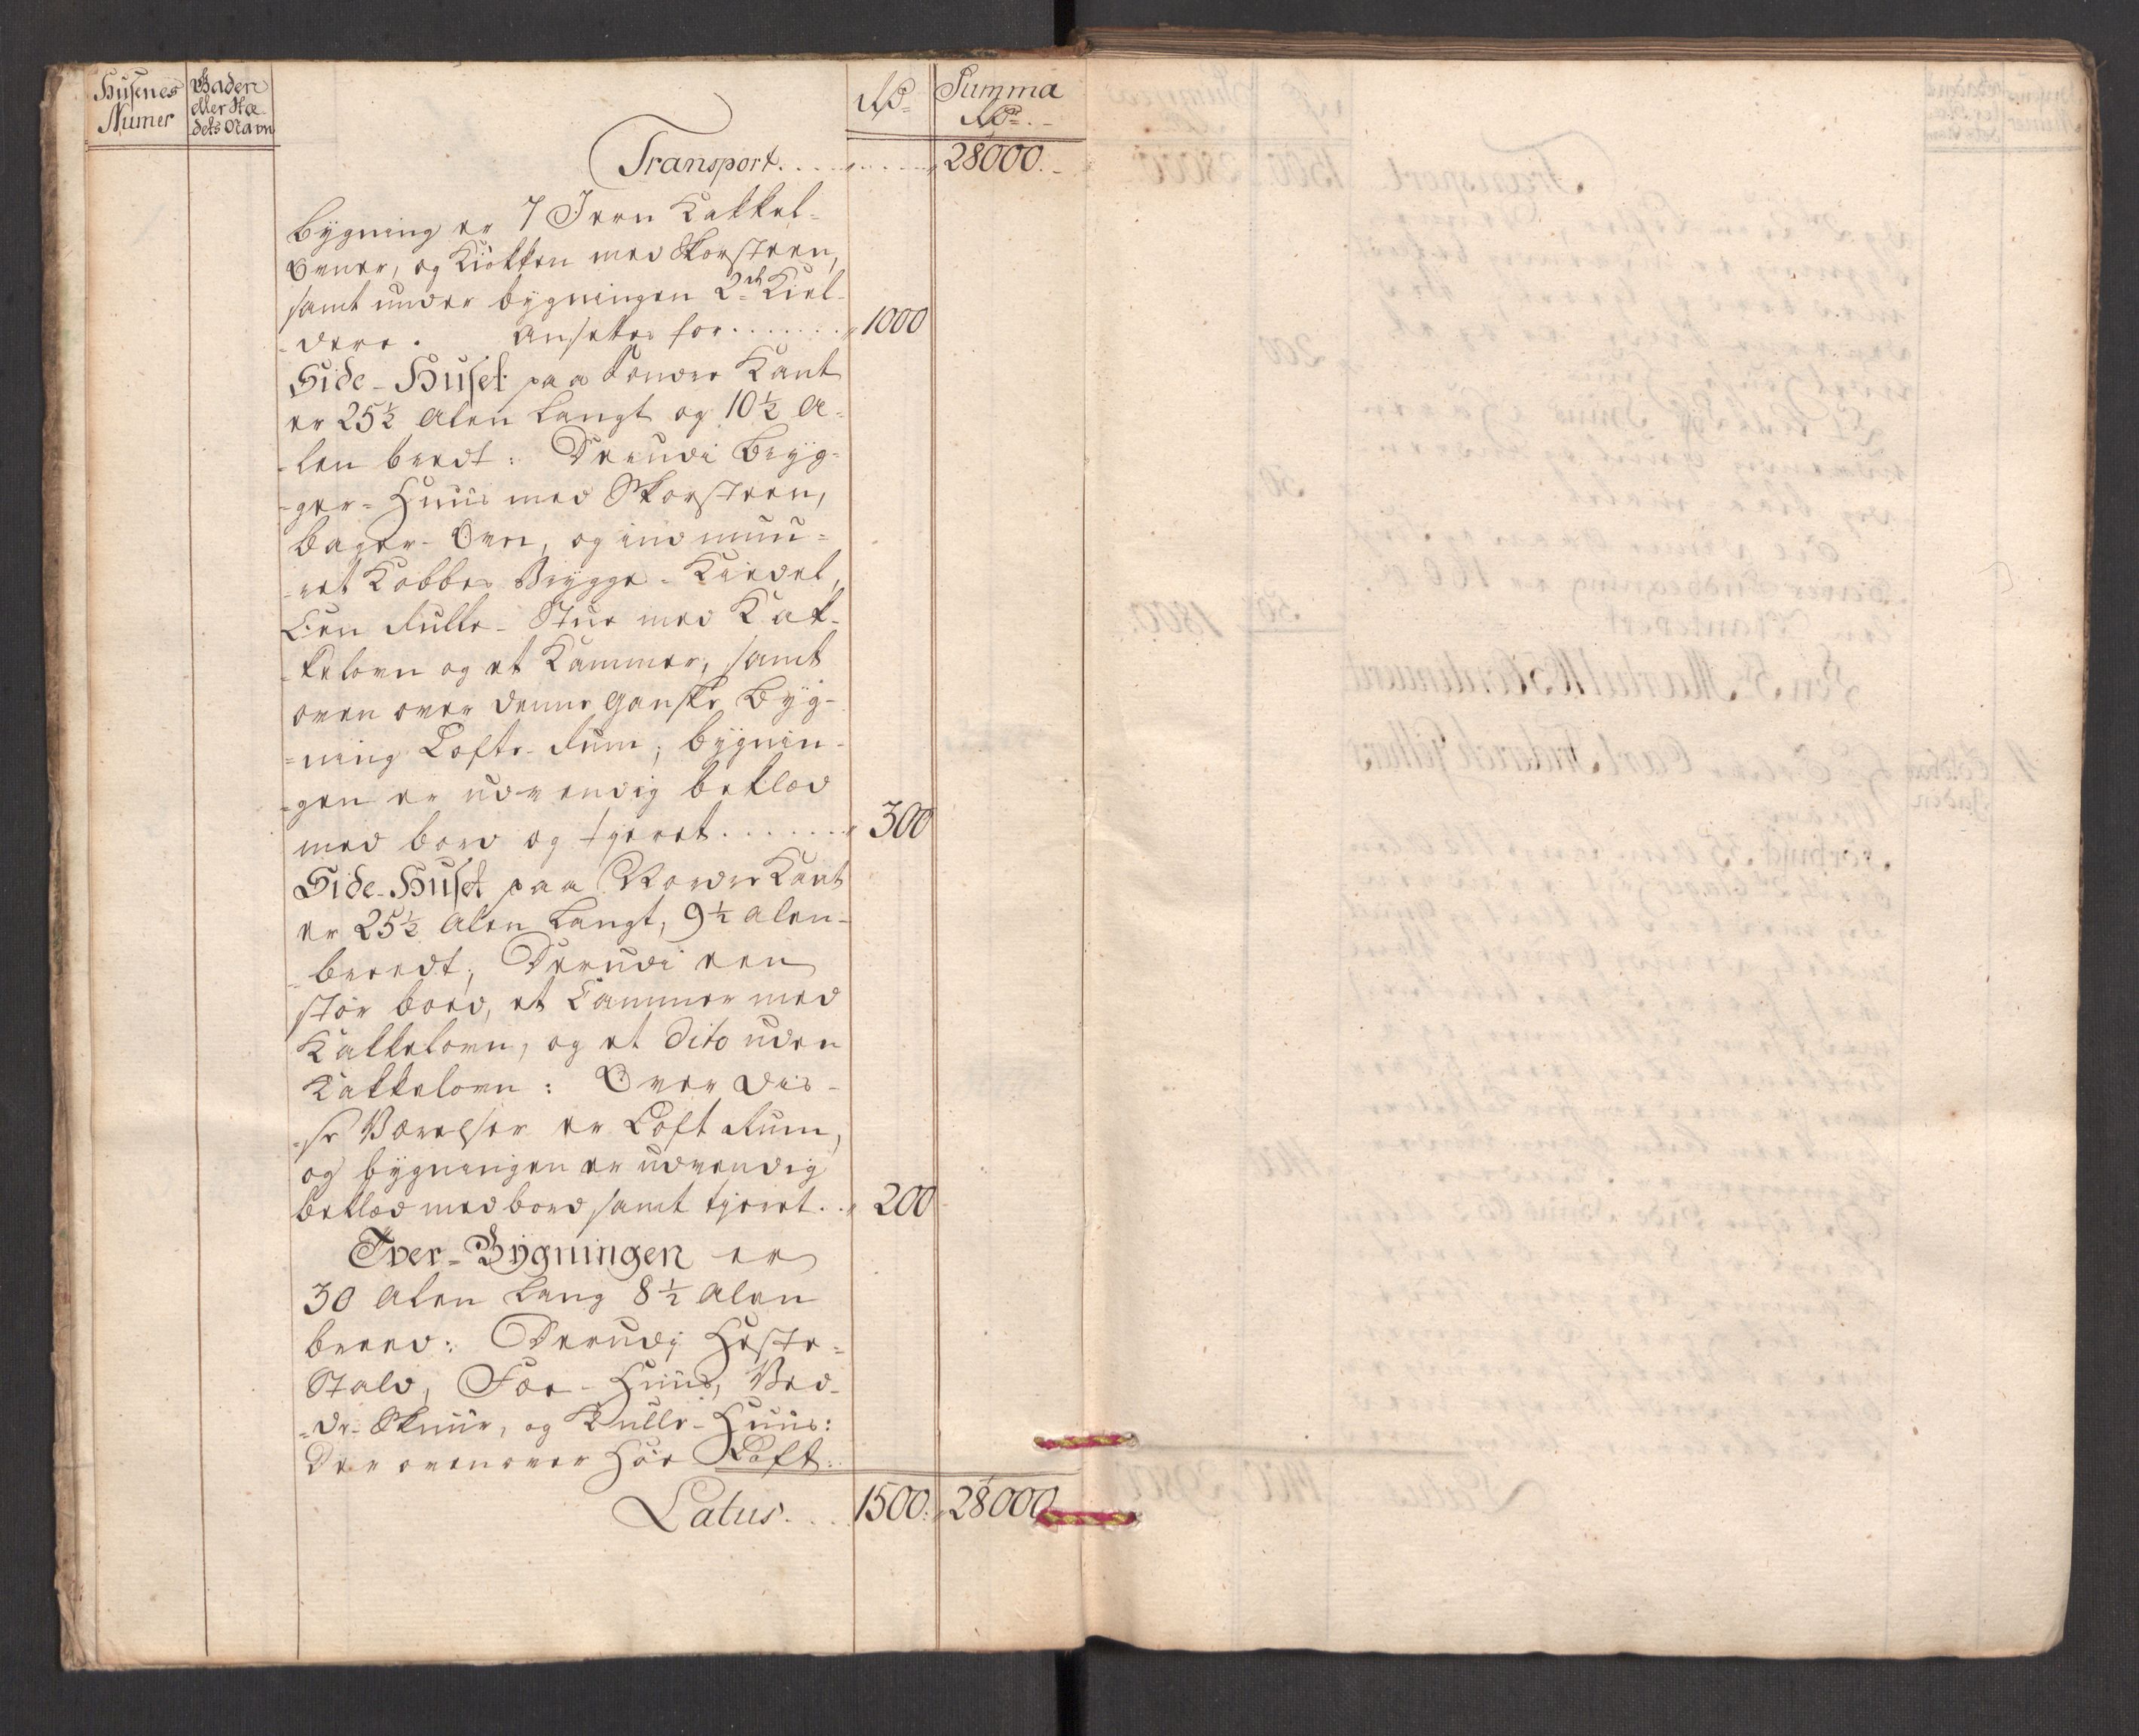 Husenes Numer
Gaden eller Stædets Navn
Rdr
Summa Rdr
Transport . . . . . . . . 28000. -
bygning er 7 Jern Kakkel-
Ovner, og Kiøkken med Skorsteen,
samt under bygningen 2de Kiel-
-dere. Ansettes for . . . . . . . 1000
Side-Huset paa Sønder Kant
er 25½ Alen Langt og 10½ A-
-len bredt: Derudi Bryg-
-ger-Huus med Skorsteen,
bager-Ovn, og ind muu-
-ret Kobber Brygge-Kiedel,
Een Rulle-Stue med Kak-
-kelovn og et Kammer, samt
oven over denne Ganske Byg-
-ning Lofts-Rum; bygnin-
-gen er udvendig beklæd
med bord og tjeret . . . . . . . 300
Side-Huset paa Norder Kant
er 25½ Alen Langt, 9½ Alen-
-breedt; Derudi een
stor boed, et Cammer med
Kakkelovn, og et dito uden
Kakkelovn: Over dis-
-se Værelser er Loft Rum,
og bygningen er udvendig
beklæd med bord samt tjeret . . 200
Tver-Bygningen er
30 Alen Lang 8½ Alen
breed: Derudj Heste-
Stald, Fæe-Huus, Ved-
-de-Skuur, og Rulle-Huus:
Der ovenover Høe Loft:
Latus . . . . 1500. 28000